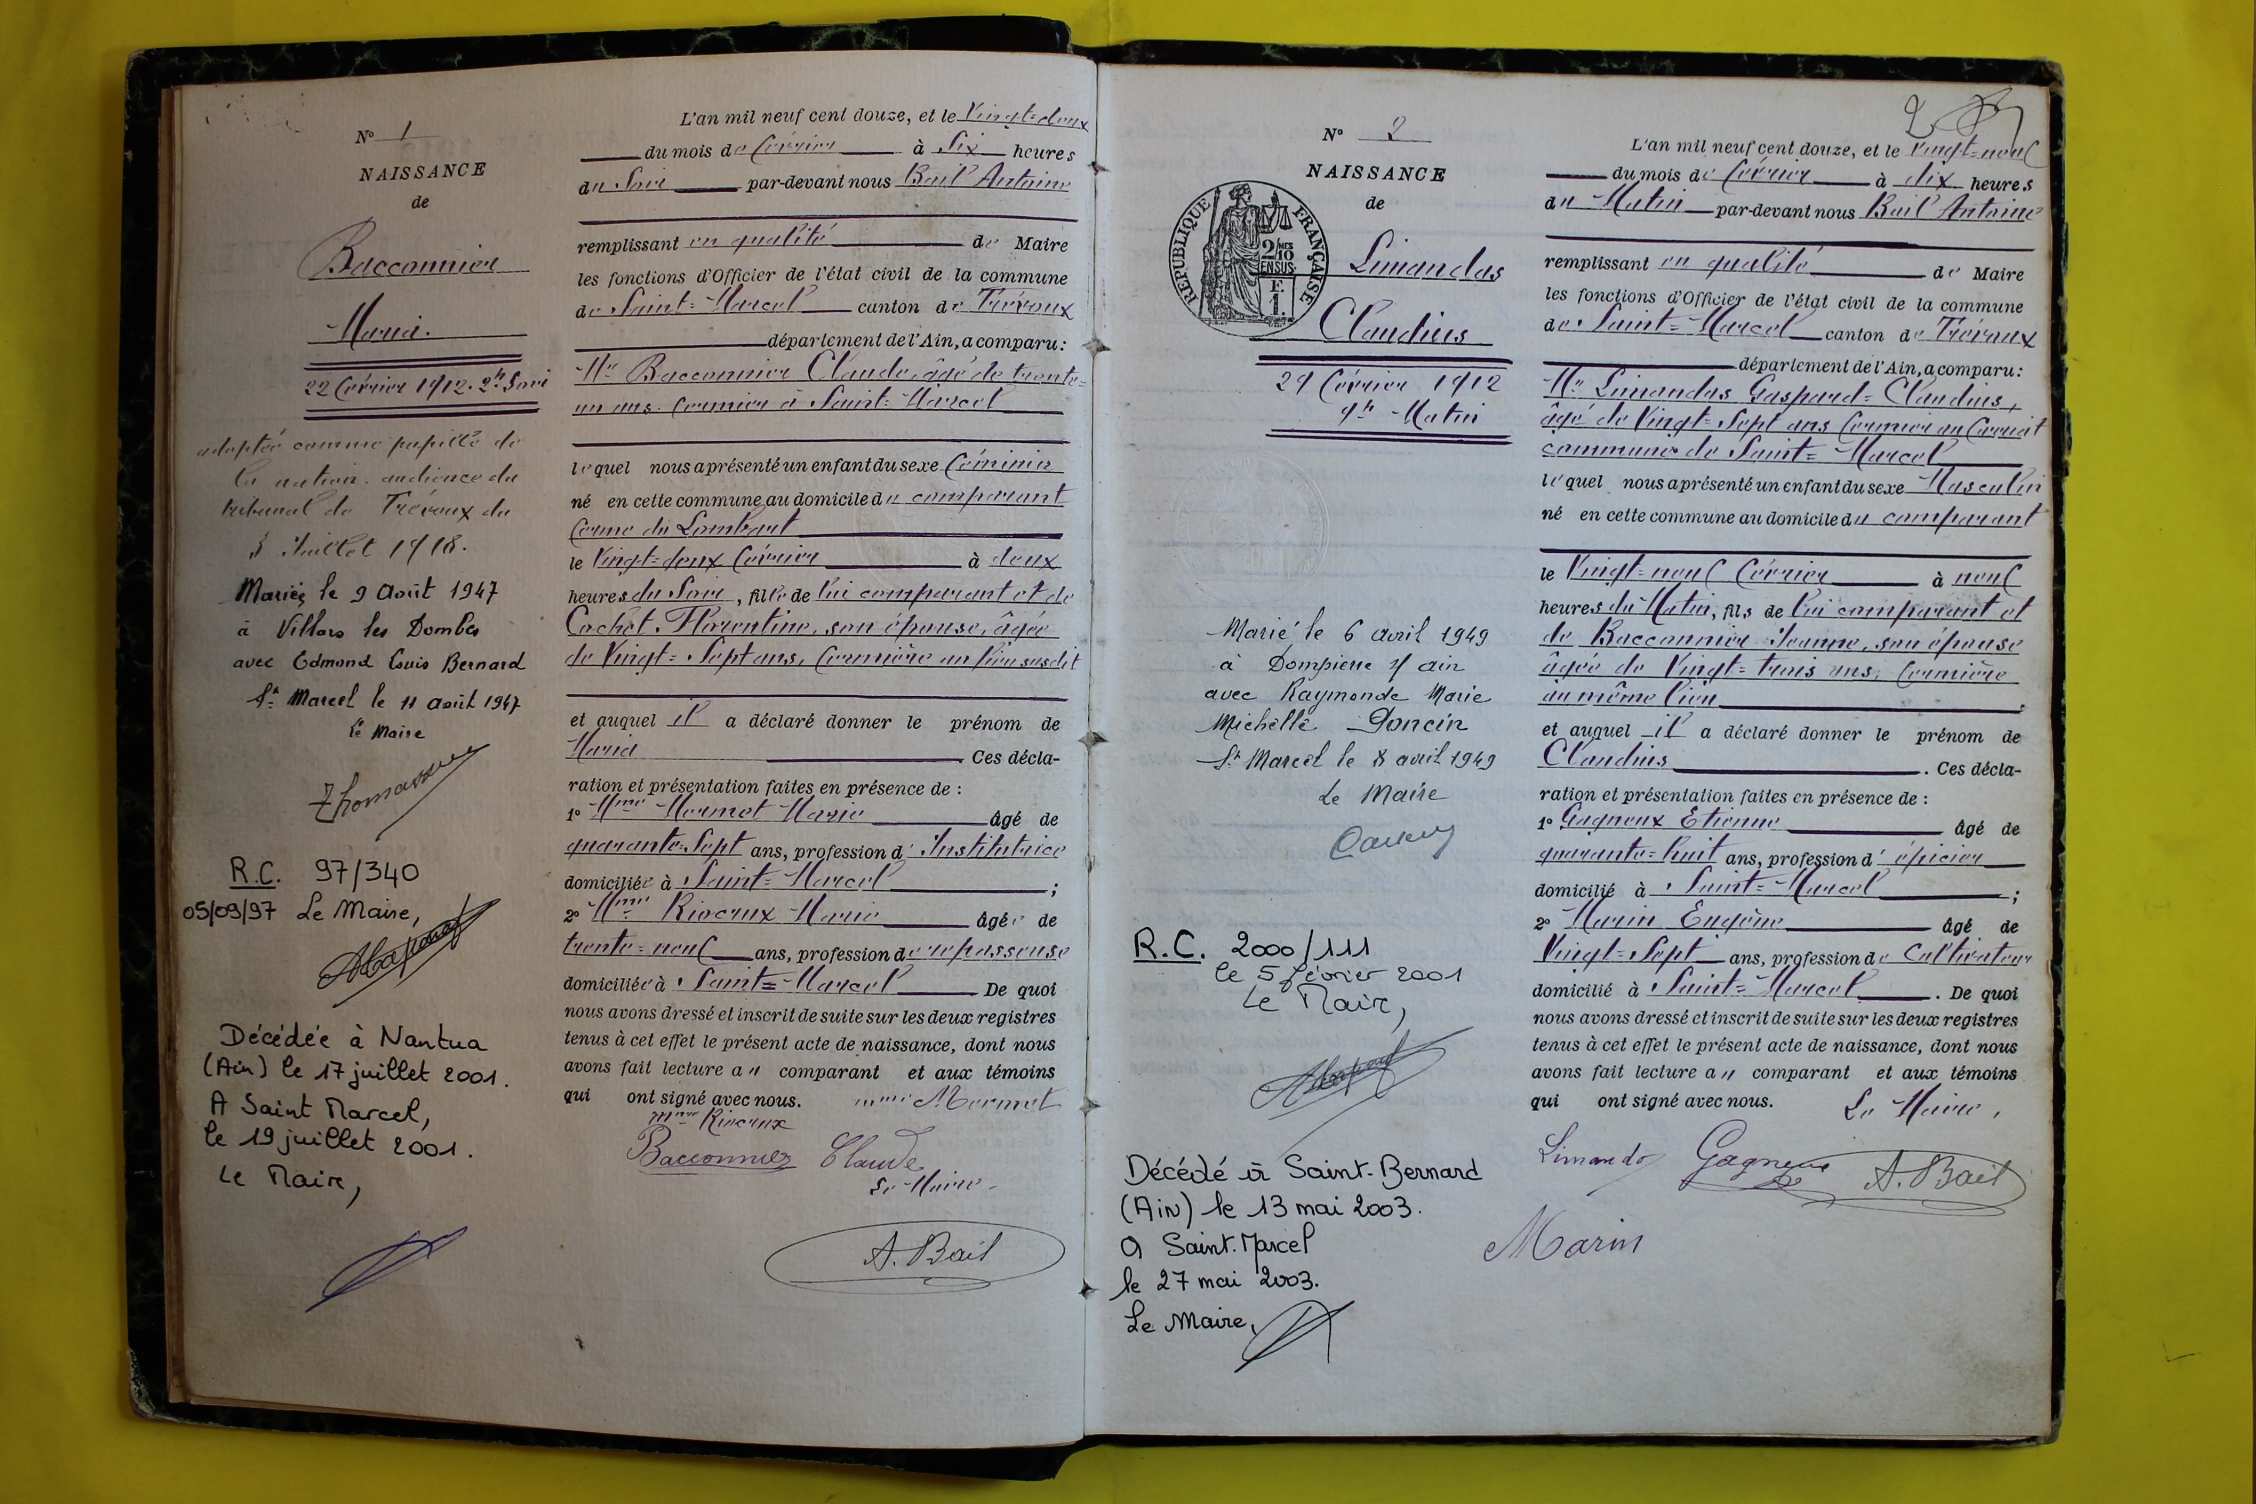 N° 1
NAISSANCE
de
Bacconnier
Maria.
22 Février 1912. 2h Soir
adoptée comme pupille de
la nation. audience du
tribunal de Trévoux du
5 Juillet 1918.
Mariée le 9 Août 1947
à Villars les Dombes
avec Edmond Louis Bernard
St Marcel le 11 août 1947
Le Maire
Thomasson
R.C. 97/340
05/09/97 Le Maire,
Décédée à Nantua
(Ain) le 17 juillet 2001.
A Saint Marcel,
le 19 juillet 2001.
Le Maire,
L'an mil neuf cent douze, et le Vingt=deux
du mois de Février à Six heures
du Soir par-devant nous Bail Antoine
remplissant en qualité de Maire
les fonctions d'Officier de l'état civil de la commune
de Saint=Marcel canton de Trévoux
département de l'Ain, a comparu:
Mr Bacconnier Claude, âgé de trente=
un ans. Fermier à Saint=Marcel
lequel nous a présenté un enfant du sexe Féminin
né en cette commune au domicile du comparant
Ferme du Lombart
le Vingt=deux Février à deux
heures du Soir, fille de lui comparant et de
Cochet Florentine, son épouse, âgée
de Vingt=Sept ans, Fermière au lieu susdit
et auquel il a déclaré donner le prénom de
Maria Ces décla-
ration et présentation faites en présence de :
1° Mme Mermet Marie Âgé de
quarante=Sept ans, profession d' Institutrice
domiciliée à Saint=Marcel ;
2° Mme Rioeux Marie Âgée de
trente=neuf ans, profession de repasseuse
domiciliée à Saint=Marcel De quoi
nous avons dressé et inscrit de suite sur les deux registres
tenus à cet effet le présent acte de naissance, dont nous
avons fait lecture au comparant et aux témoins
qui ont signé avec nous. mme Mermet
mme Rioeux
Bacconnier Claude
Le Maire.
A. Bail
2
N° 2
NAISSANCE
de
RÉPUBLIQUE FRANÇAISE
2/10MES
EN SUS.
F.
1.
Limandas
Claudius
29 Février 1912
9h Matin
Marié le 6 avril 1949
à Dompierre s/ ain
avec Raymonde Marie
Michelle Poncin
St Marcel le 8 avril 1949
Le Maire
R.C. 2000/111
le 5 février 2001
Le Maire,
Décédé à Saint-Bernard
(Ain) le 13 mai 2003.
A Saint-Marcel
le 27 mai 2003.
Le Maire,
L'an mil neuf cent douze, et le Vingt=neuf
du mois de Février à dix heures
du Matin par-devant nous Bail Antoine
remplissant en qualité de Maire
les fonctions d'Officier de l'état civil de la commune
de Saint=Marcel canton de Trévoux
département de l'Ain, a comparu:
Mr Limandas Gaspard=Claudius,
âgé de Vingt=Sept ans Fermier au
commune de Saint=Marcel
lequel nous a présenté un enfant du sexe Masculin
né en cette commune au domicile du comparant
le Vingt=neuf Février à neuf
heures du Matin, fils de lui comparant et
de Bacconnier Jeanne, son épouse
âgée de Vingt=trois ans, Fermière
au même lieu
et auquel il a déclaré donner le prénom de
Claudius . Ces décla-
ration et présentation faites en présence de :
1° Gagneux Etienne Âgé de
quarante=huit ans, profession d' épicier
domicilié à Saint=Marcel ;
2° Marin Eugène Âgé de
Vingt=Sept ans, profession de Cultivateur
domicilié à Saint=Marcel . De quoi
nous avons dressé et inscrit de suite sur les deux registres
tenus à cet effet le présent acte de naissance, dont nous
avons fait lecture au comparant et aux témoins
qui ont signé avec nous. Le Maire,
Limandas Gagneux A. Bail
Marin